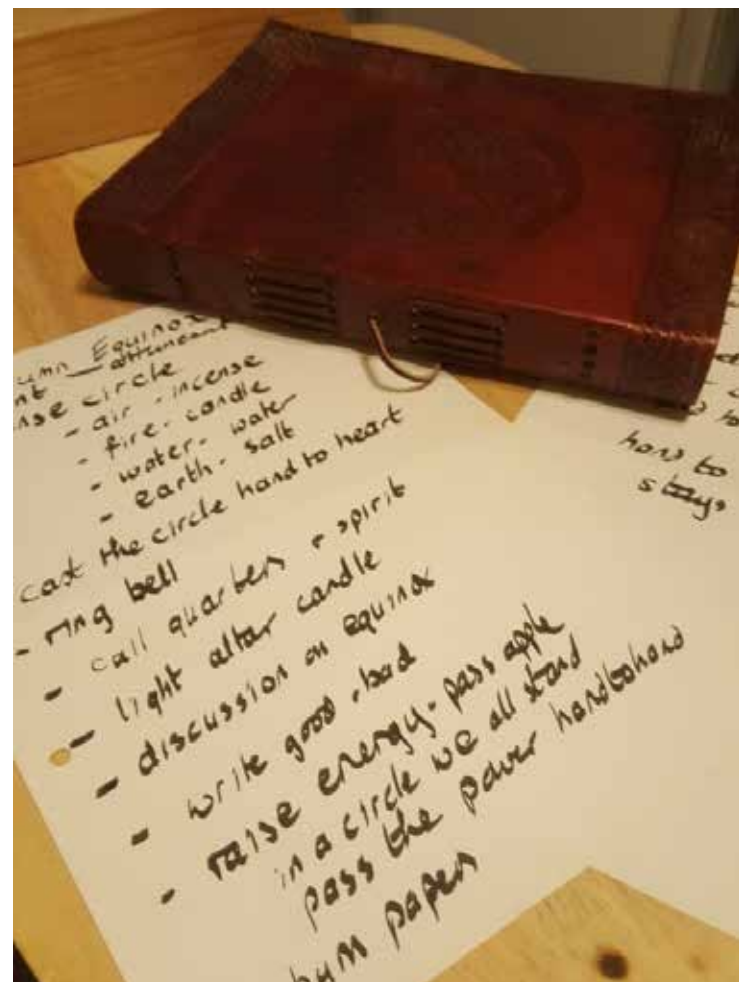 Equinox
attunement
circle
- air - incense
- fire - candle
- water - water
- earth - salt
cast the circle hand to heart
- ring bell
- call quarters + spirit
- light altar candle
- discussion on equinox
- write good + bad
- raise energy - pass apple
in a circle we all stand
pass the power hand to hand
papers
hand to
stays